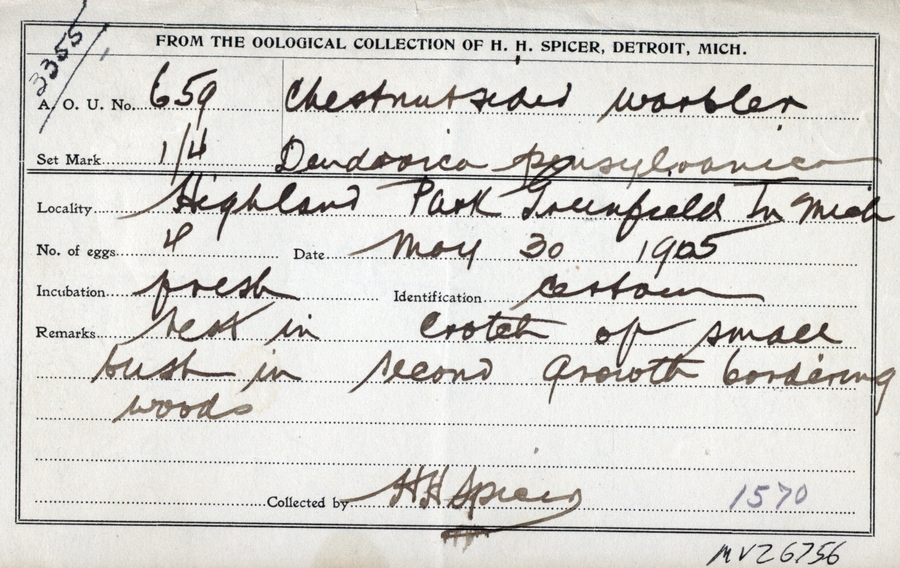 3355
FROM THE OOLOGICAL COLLECTION OF H. H. SPICER, DETROIT, MICH.
A. O. U. No. 659 Chestnutsided Warbler
Set Mark 1/4 Dendroica pensylvanica
Locality Highland Park Greenfield Tn Mich
No. of eggs 4 Date May 30 1905
Incubation fresh Identification Certain
Remarks Nest in Crotch of small
bush in second growth bordering
woods
Collected by HH Spicer 1570
MVZ 6756